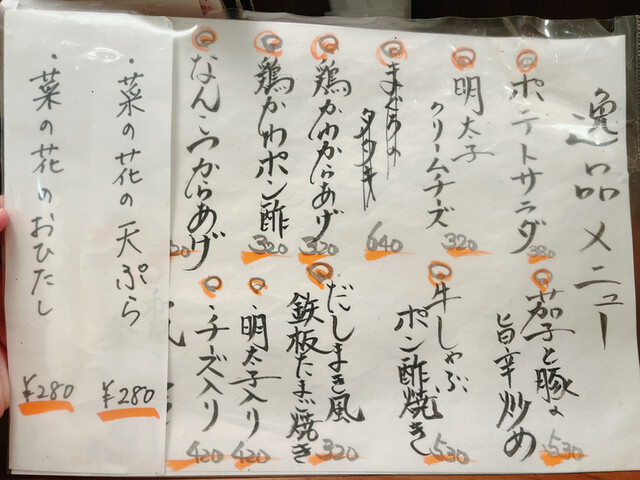 逸品メニュー
ポテトサラダ
380
明太子
クリームチーズ
320
まぐろの
タタキ
640
鶏かわからあげ
320
鶏かわポン酢
320
なんこつからあげ
20
茄子と豚の
旨辛炒め
530
牛しゃぶ
ポン酢焼き
530
だしまき風
鉄板たまご焼き
320
・明太子入り
420
・チーズ入り
420
・菜の花の天ぷら
¥280
・菜の花のおひたし
¥280